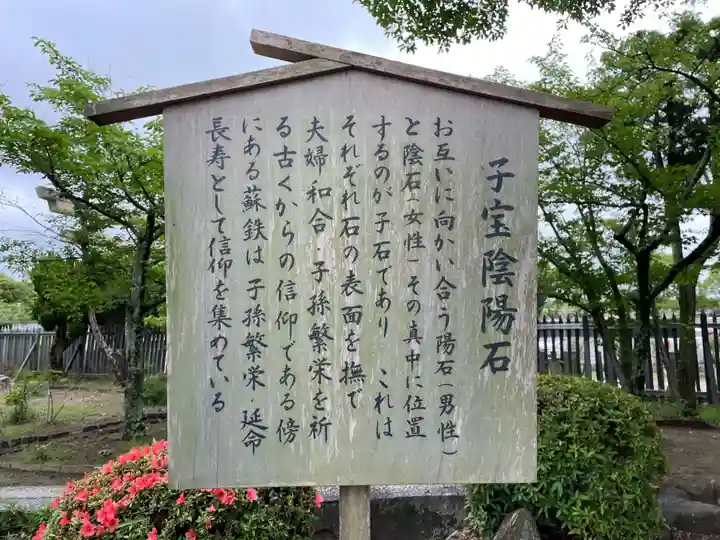 子宝陰陽石
お互いに向かい合う陽石(男性)
と陰石(女性)その真中に位置
するのが子石であり これは
それぞれ石の表面を撫で
夫婦和合・子孫繁栄を祈
る古くからの信仰である傍
にある蘇鉄は子孫繁栄・延命
長寿として信仰を集めている